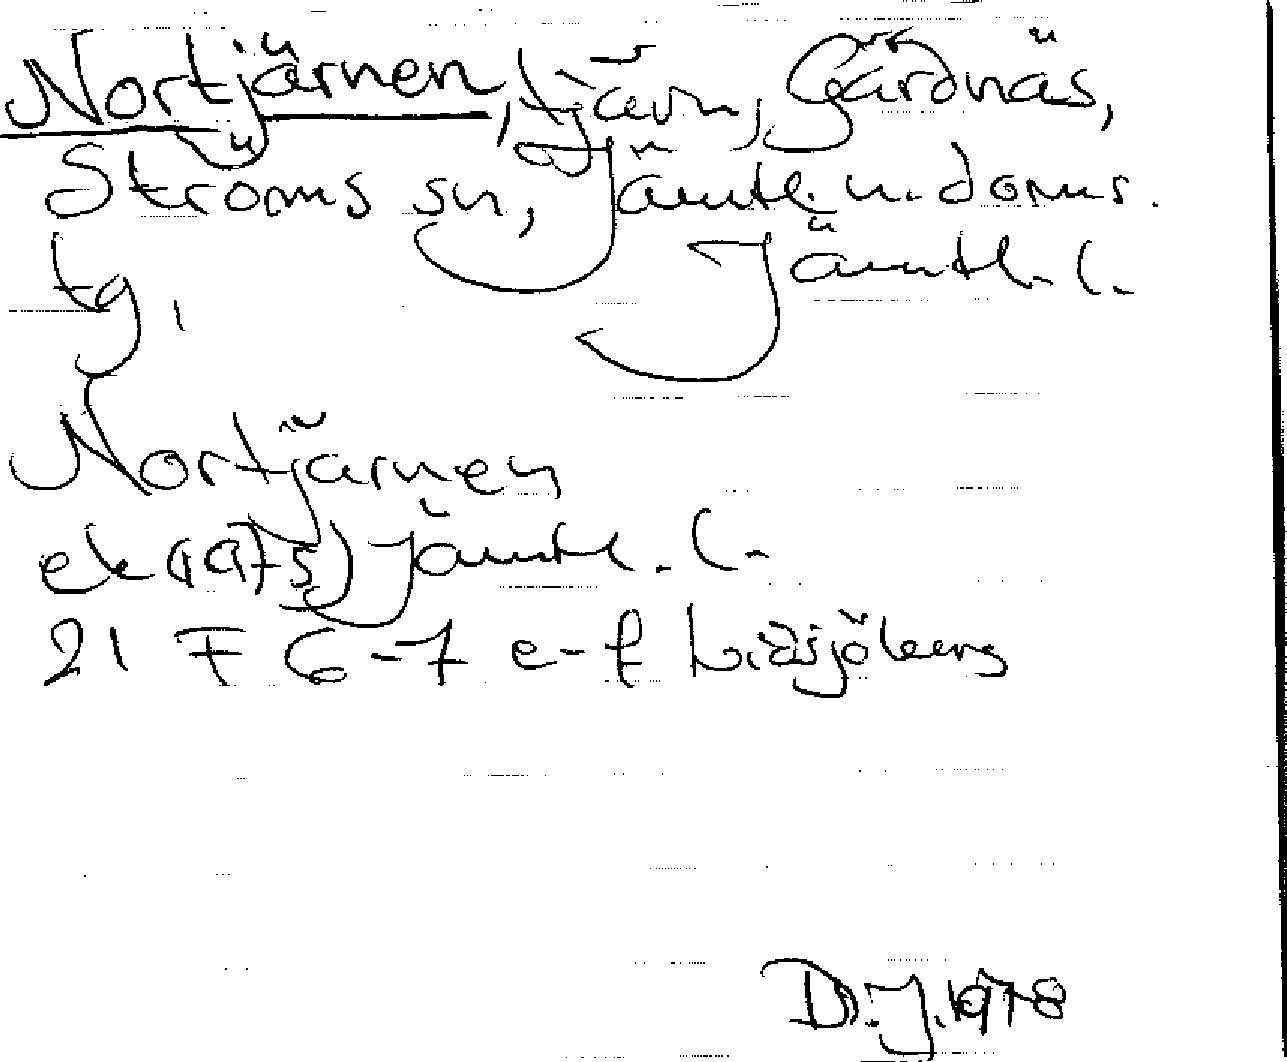 Nortjärnen, tjärn, Gärdnäs,
Ströms sn, Jämtl. n. doms.
tg,
Jämtl. l.
Nortjärnen
ek (1975) Jämtl. l.
21 F 6-7 e-f Lidsjöberg
D.J. 1978